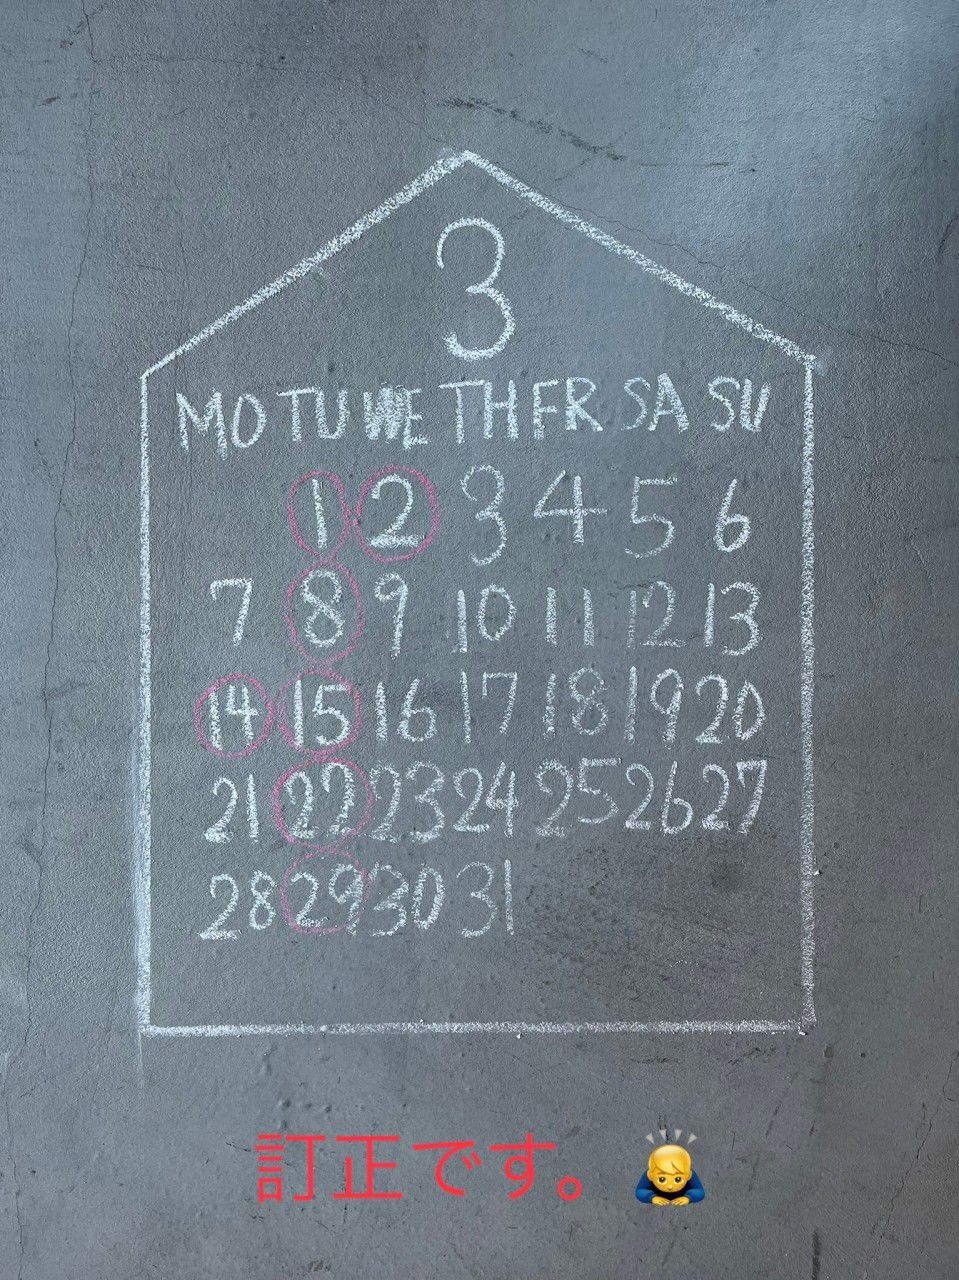 3
MO TU WE TH FR SA SU
1 2 3 4 5 6
7 8 9 10 11 12 13
14 15 16 17 18 19 20
21 22 23 24 25 26 27
28 29 30 31
訂正です。🙇‍♂️